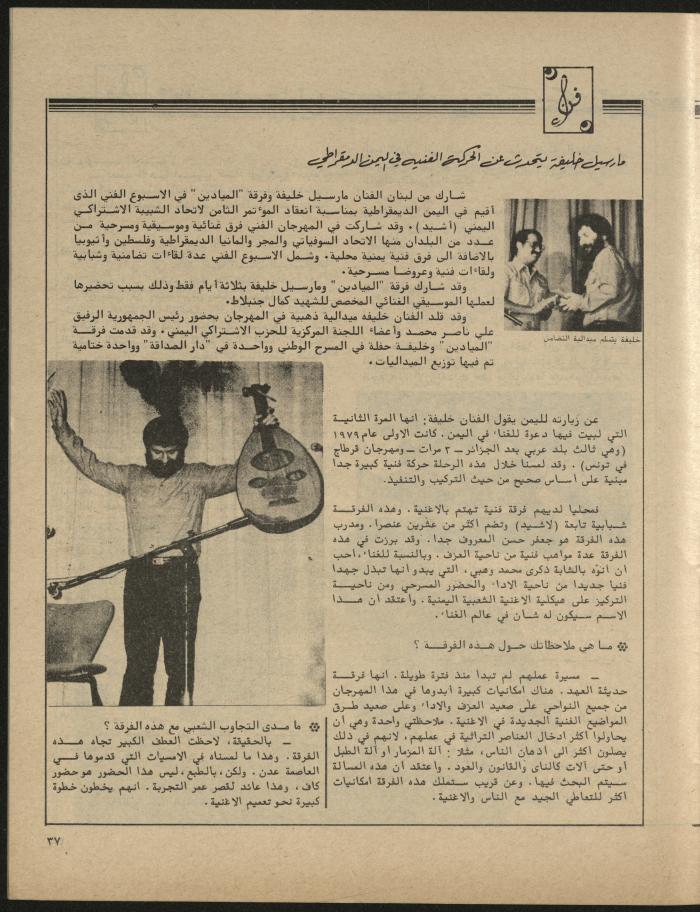 فن
مارسيل خليفة يتحدث عن الحركة الفنية في اليمن الديمقراطي
شارك من لبنان الفنان مارسيل خليفة وفرقة "الميادين" في الاسبوع الفني الذى
أقيم في اليمن الديمقراطية بمناسبة انعقاد الموءتمر الثامن لاتحاد الشبيبة الاشتراكي
اليمني (أشيد) ٠ وقد شاركت في المهرجان الفني فرق غنائية وموسيقية ومسرحية من
عدد من البلدان منها الاتحاد السوفياتي والمجر والمانيا الديمقراطية وفلسطين وأثيوبيا
بالاضافة الى فرق فنية يمنية محلية٠ وشمل الاسبوع الفني عدة لقاءات تضامنية وشبابية
ولقاءات فنية وعروضا مسرحية٠
وقد شارك فرقة "الميادين" ومارسيل خليفة بثلاثة أيام فقط وذلك بسبب تحضيرها
لعملها الموسيقي الغنائي المخصص للشهيد كمال جنبلاط٠
وقد قلد الفنان خليفة ميدالية ذهبية في المهرجان بحضور رئيس الجمهورية الرفيق
علي ناصر محمد وأعضاء اللجنة المركزية للحزب الاشتراكي اليمني ٠ وقد قدمت فرقة
"الميادين" وخليفة حفلة في المسرح الوطني وواحدة في "دار الصداقة" وواحدة ختامية
تم فيها توزيع الميداليات ٠
خليفة يتسلم ميدالية التضامن
عن زيارته لليمن يقول الفنان خليفة: انها المرة الثانية
التي لبيت فيها دعوة للغناء في اليمن ٠ كانت الاولى عام ١٩٧٩
(وهي ثالث بلد عربي بعد الجزائر ــ ٣ مرات ــ ومهرجان قرطاج
في تونس) ٠ وقد لمسنا خلال هذه الرحلة حركة فنية كبيرة جدا
مبنية على أساس صحيح من حيث التركيب والتنفيذ٠
فمحليا لديهم فرقة فنية تهتم بالاغنية ٠ وهذه الفرقة
شبابية تابعة (لاشيد) وتضم أكثر من عشرين عنصرا٠ ومدرب
هذه الفرقة هو جعفر حسن المعروف جدا٠ وقد برزت في هذه
الفرقة عدة مواهب فنية من ناحية العزف ٠ وبالنسبة للغناء،أحب
أن أنوّه بالشابة ذكرى محمد وهبي، التي يبدو أنها تبذل جهدا
فنيا جديدا من ناحية الاداء والحضور المسرحي ومن ناحية
التركيز على هيكلية الاغنية الشعبية اليمنية ٠ وأعتقد أن هذا
الاسم سيكون له شأن في عالم الغناء٠
ما هي ملاحظاتك حول هذه الفرقة ؟
ــ مسيرة عملهم لم تبدأ منذ فترة طويلة ٠ انها فرقة
حديثة العهد ٠ هناك امكانيات كبيرة أبدوها في هذا المهرجان
من جميع النواحي على صعيد العزف والاداء وعلى صعيد طرق
المواضيع الفنية الجديدة في الاغنية ٠ ملاحظتي واحدة وهي أن
يحاولوا أكثر ادخال العناصر التراثية في عملهم، لانهم في ذلك
يصلون أكثر الى أذهان الناس، مثلا : آلة المزمار أو آلة الطبل
أو حتى آلات كالناي والقانون والعود ٠ وأعتقد أن هذه المسألة
سيتم البحث فيها٠ وعن قريب ستملك هذه الفرقة امكانيات
أكثر للتعاطي الجيد مع الناس والاغنية ٠
ما مدى التجاوب الشعبي مع هذه الفرقة ؟
ــ بالحقيقة، لاحظت العطف الكبير تجاه هذه
الفرقة ٠ وهذا ما لمسناه في الامسيات التي قدموها في
العاصمة عدن ٠ ولكن، بالطبع، ليس هذا الحضور هو حضور
كاف ، وهذا عائد لقصر عمر التجربة ٠ انهم يخطون خطوة
كبيرة نحو تعميم الاغنية ٠
٣٧